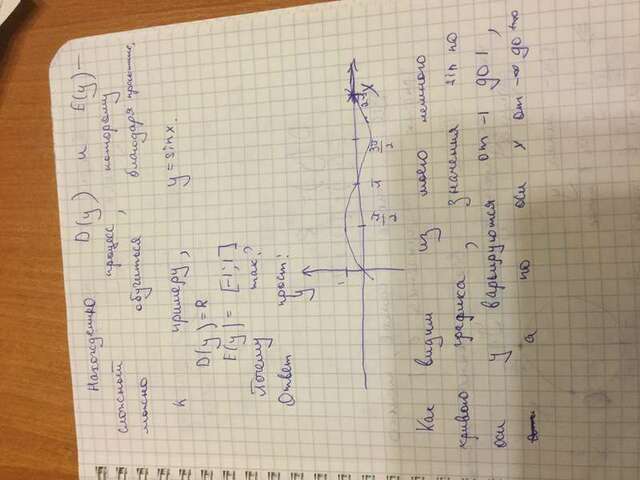 Нахождению D(y) и E(y) –
сложный процесс, которому
можно обучиться благодаря практике.
К примеру, y=sinx.
D(y)=R
E(y)= [-1;1]
Почему так?
Ответ прост:
y
1
π/2 π 3π/2 2π x
Как видим из моего немного
кривого графика, значения sin по
оси y варьируются от -1 до 1,
а по оси x от -∞ до +∞